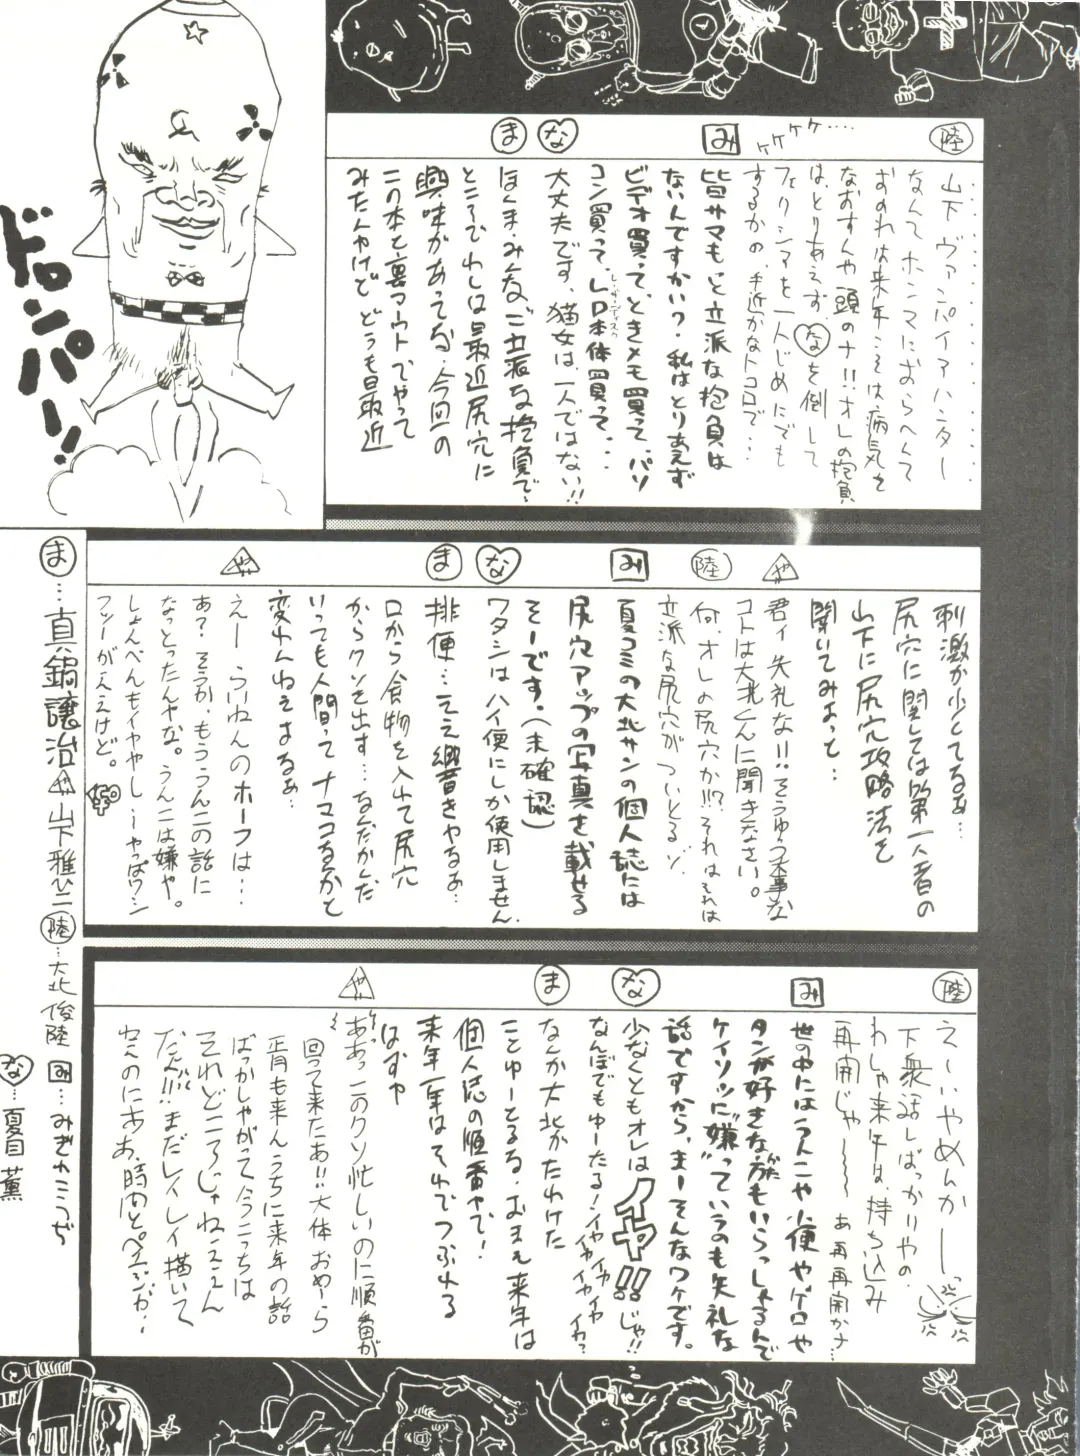 陸
山下ヴァンパイアハンター
なんてホンマにおらへんて
おのれは来年こそは病気を
なおすんや頭のナ!!オレの抱負
は、とりあえず なを倒して
フェリシアを一人じめにでも
するかの、手近かなトコロで…
ケケケケ….
み
皆サマもっと立派な抱負は
ないんですかい?私はとりあえず
ビデオ買って、ときメモ買って、パソ
コン買って、LD本体買って...
な
大丈夫です、猫女は一人ではない!!
ま
ほくま、みんなご立派な抱負で、
ところでわしは最近尻穴に
興味があってな、今回の
この本と裏マウントでやって
みたんやけど どうも最近
ドロンパー!!
刺激が少くてなあ…
尻穴に関しては第一人者の
山下に尻穴攻略法を
聞いてみよっと…
や
君ィ失礼な!!そうゆう大事な
コトは大北くんに聞きなさい。
陸
何、オレの尻穴か!!?それはそれは
立派な尻穴がついとるゾ
み
夏コミの大北サンの個人誌には
尻穴アップの写真を載せる
そーです。(未確認)
な
ワタシはハイ便にしか使用しません
ま
排便…ええ響きやなあ…
口から食物を入れて尻穴
からクソを出す…なんだかんだ
いっても人間ってナマコなんかと
変わんねえなあ…
や
えー らいねんのホーフは…
あ?そうか、もううんこの話に
なっとったんヤな。うんこは嫌や。
しょんべんもイヤやし…やっぱワシ
フツーがええけど。
陸
え〜いやめんかー
下衆話しばっかりやの、
わしゃ来年は、持ち込み
再開じゃ〜〜〜 あ 再再開かナ…
み
世の中にはうんこや小便やゲロや
タンが好きな方もいらっしゃるんで
ケイソツに"嫌"っていうのも失礼な
話ですから、まーそんなワケです。
な
少なくともオレはイヤ!!じゃ!!
なんぼでもゆーたる!イヤイヤイヤイヤ イヤ?
ま
なんか大北がたわけた
ことゆーとるな、おまえ来年は
個人誌の順番やで!
来年一年はそれでつぶれる
はずや
や
ああっこのクソ忙しいのに順番が
回って来たあ!!大体おめーら
正月も来んうちに来年の話
ばっかしゃがって今こっちは
それどころじゃねええん
だよ!!まだレイレイ描いて
ねえのにああ、時間とページが…
ま…真鍋譲治 や山下雅
陸…大北俊陸 み…みぎわこうぢ
な…夏目薫